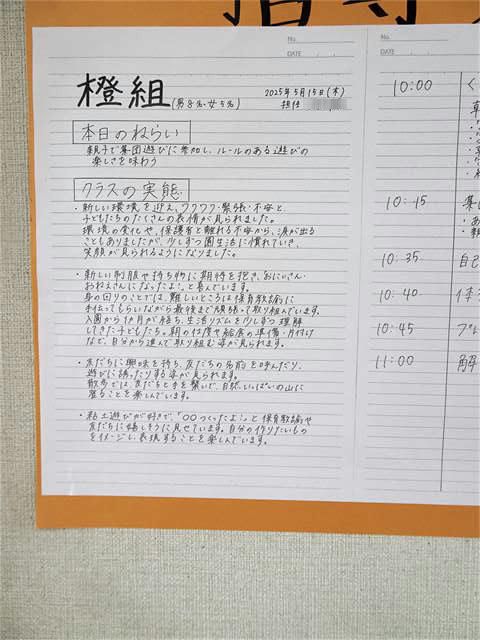 指導
No.
DATE
橙組(男8名・女5名)
2025年5月15日(木)
担任
本日のねらい
親子で集団遊びに参加し、ルールのある遊びの
楽しさを味わう
クラスの実態
・新しい環境を迎え、ワクワク・緊張・不安と、
子どもたちのたくさんの表情が見られました。
環境の変化や、保護者と離れる不安から、涙が出る
こともありましたが、少しずつ園生活に慣れていき、
笑顔が見られるようになりました。
・新しい制服や持ち物に期待を抱き、「おにいさん・
おねえさんになったよ!」と喜んでいます。
身の回りのことでは、難しいところは保育教諭に
手伝ってもらいながら最後まで頑張って取り組んでいます。
入園から1か月が経ち、生活リズムを少しずつ理解
してきた子どもたち。朝の仕度や給食の準備・片付け
など、自分から進んで取り組む姿が見られます。
・友だちに興味を持ち、友だちの名前を呼んだり、
遊びに誘ったりする姿が見られます。
散歩では、友だちと手を繋いで、自然いっぱいの山に
登ることを楽しんでいます。
・粘土遊びが好きで、「〇〇つくったよ!」と保育教諭や
友だちに嬉しそうに見せています。自分の作りたいもの
をイメージし、表現することを楽しんでいます。
No.
DATE
10:00
10:15
10:35 自己
10:40
10:45
11:00 解